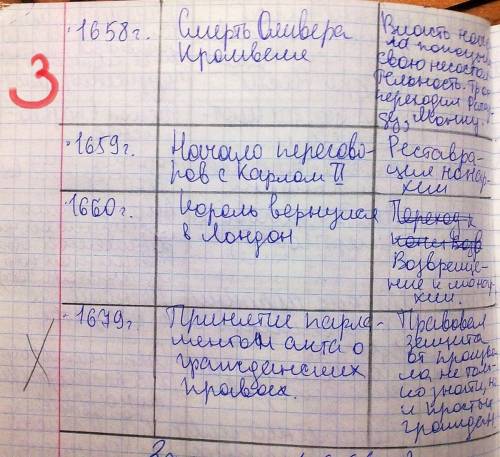 3
· 1658г.
Смерть Оливера
Кромвеля
Власть нача-
ла
свою несостоя-
тельность.
переходил
Монку.
· 1659г.
Начало перегово-
ров с Карлом II
Реставра-
ция монар-
хии
1660г.
Король вернулся
в Лондон
Переход к
Возвраще-
ние к монар-
хии.
· 1679г.
Принятие парла-
ментом акта о
гражданских
правах.
Правовая
защита
от произво-
ла, не толь-
ко знати, но
и простых
граждан